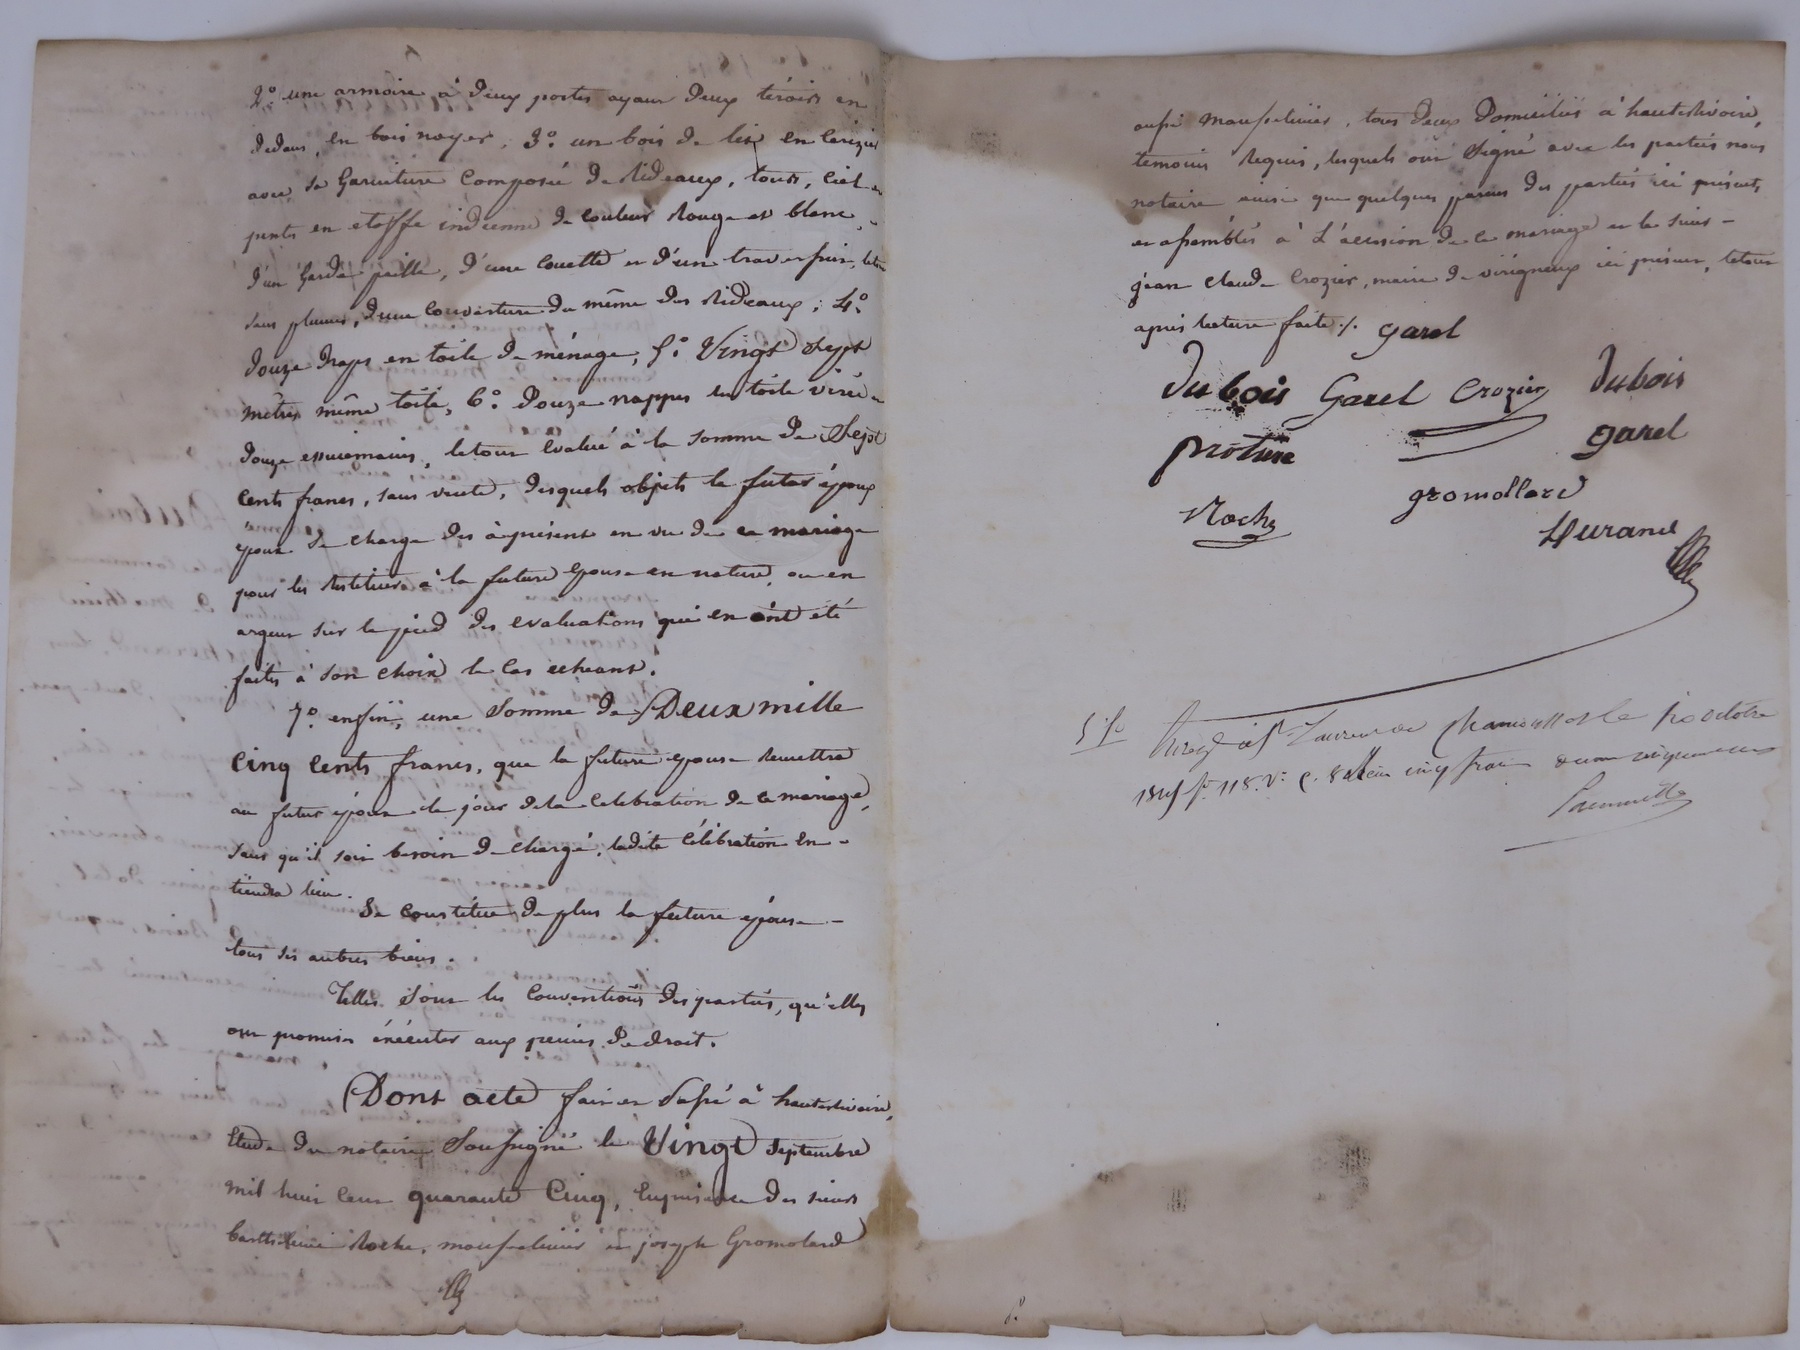 2° une armoire à deux portes ayant deux tiroirs en
dedans, en bois noyer, 3° un bois de lit en cerizier
avec sa garniture composée de rideaux, tours, ciel et
pents en etoffe indienne de couleur rouge et blanc,
d'un garde paille, d'une couette et d'un traversin, le tout
sans plumes, d'une couverture du même des rideaux; 4°
douze draps en toile de ménage, 5° Vingt Sept
mètres même toile, 6° douze nappes en toile virée et
douze essuiemains, le tout évalué à la somme de Sept
cents francs, sans vente, desquels objets le futur époux
epoux se charge dès àprésent en vue de ce mariage
pour les restituer à la future epouse en nature, ou en
argent sur le pied des evaluations qui en ont été
faites à son choix le cas echeant.
7° enfin, une Somme de Deux mille
cinq cents francs, que la future epouse remettra
au futur époux le jour de la celebration de ce mariage,
sans qu'il soit besoin de charge, ladite célébration en
tiendra lieu.
Se constitue de plus la future épouse
tous ses autres biens.
Telles Sont les conventions des parties, qu'elles
ont promis éxécuter aux peines de droit.
Dont acte fait et passé à hauterivoire,
Etude du notaire Soussigné le Vingt Septembre
mil huit cent quarante Cinq, En présence des sieurs
barthélemi Roche, mousselinier et joseph Gromolard
aussi mousselinier, tous deux domiciliés à hauterivoire,
temoins requis, lesquels ont Signé avec les parties nous
notaire ainsi que quelques parens des parties ici présents
et assemblés à L'occasion de ce mariage et le sieur
jean claude Crozier, maire de virigneux ici présent, le tout
après lecture faite ./. garel
Dubois Garel Crozier Dubois
proture garel
Roche gromollard
Durand
5 f
Enregé à St Laurent de Chamousset le 1er octobre
1845 f° 118 v° c. 8 cinq francs